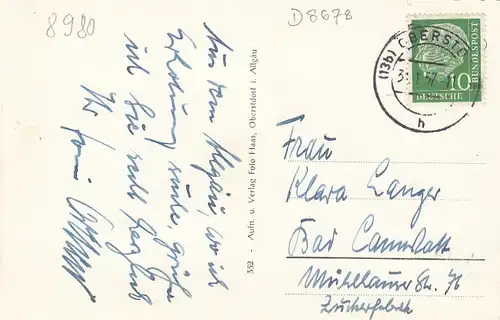 8980
D8678
Aus dem Allgäu, wo ich
Erholung suche, grüße
ich Sie recht herzlich
Ihr
352 - Aufn. u. Verlag Foto Haas, Oberstdorf i. Allgäu
(13b) OBERSTD
h
10
DEUTSCHE BUNDESPOST
Frau
Klara Langer
Bad Cannstatt
Str. 76
Zuckerfabrik